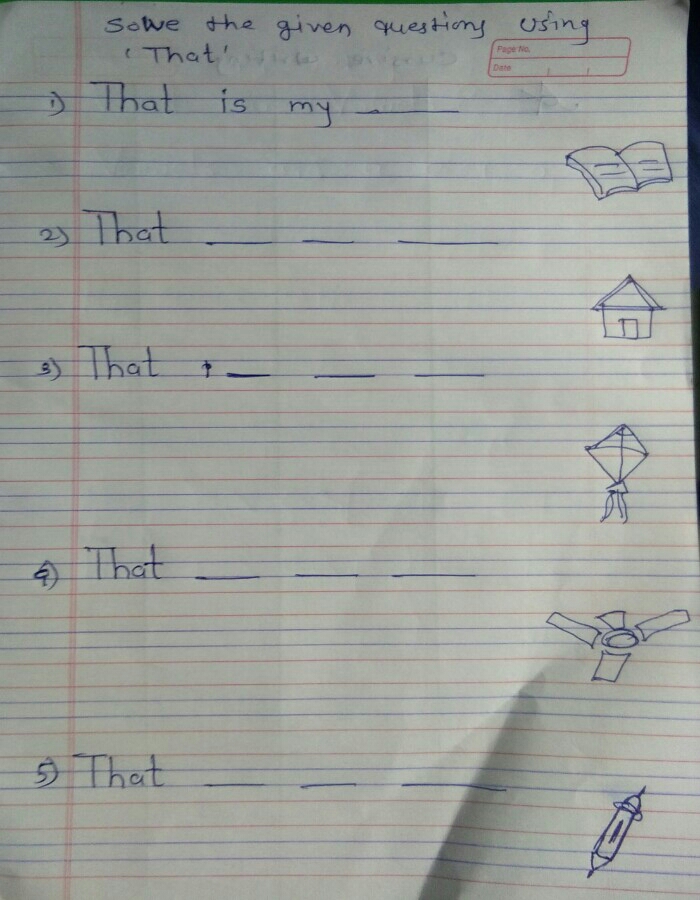 Solve the given questions using
'That'
Page No.
Date
1) That is my ____
2) That ____ ____ ____
3) That ____ ____ ____
4) That ____ ____ ____
5) That ____ ____ ____